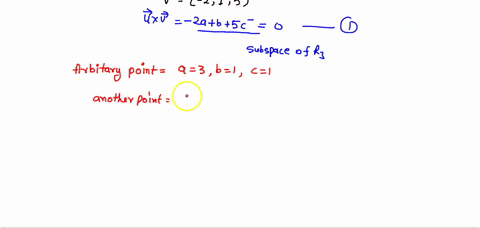 V = (-2, 1, 5)
u⃗ x v⃗ = -2a+b+5c = 0 —— ①
subspace of R₃
Arbitary point = a=3, b=1, c=1
another point =